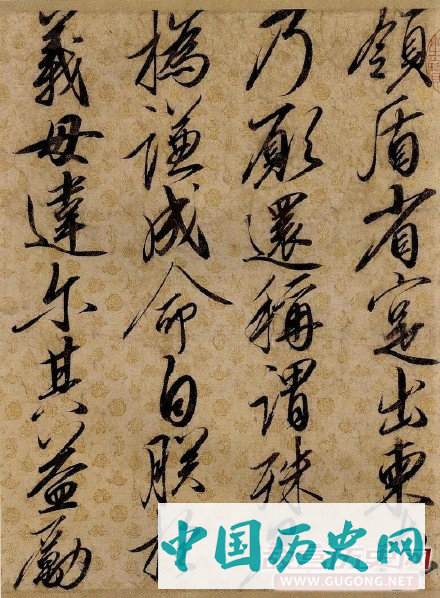 領盾省寔出柬
乃願還稱謂殊
撝謙成命自朕於
義毋違尔其益勵
中国历史网
WWW.GUGONG.NET